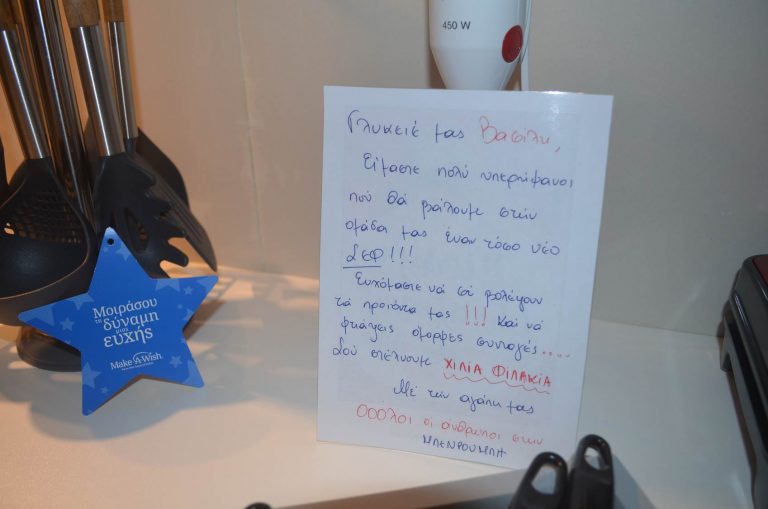 450 W
Γλυκειέ μας Βασίλη,
Είμαστε πολύ υπερήφανοι
πού θά βάλουμε στήν
ομάδα μας έναν τόσο νέο
ΣΕΦ!!!
Ευχόμαστε νά σέ βολέψουν
τά προιόντα μας!!! Καί νά
φτιάχεις όμορφες συνταγές....
Σού στέλνουμε ΧΙΛΙΑ ΦΙΛΑΚΙΑ
Μέ τήν αγάπη μας
ΟΟΟλοι οι άνθρωποι στην
ΜΠΕΝΡΟΥΜΠΗ
Μοιράσου
τη
δύναμη
μιας
ευχής
Make-A-Wish